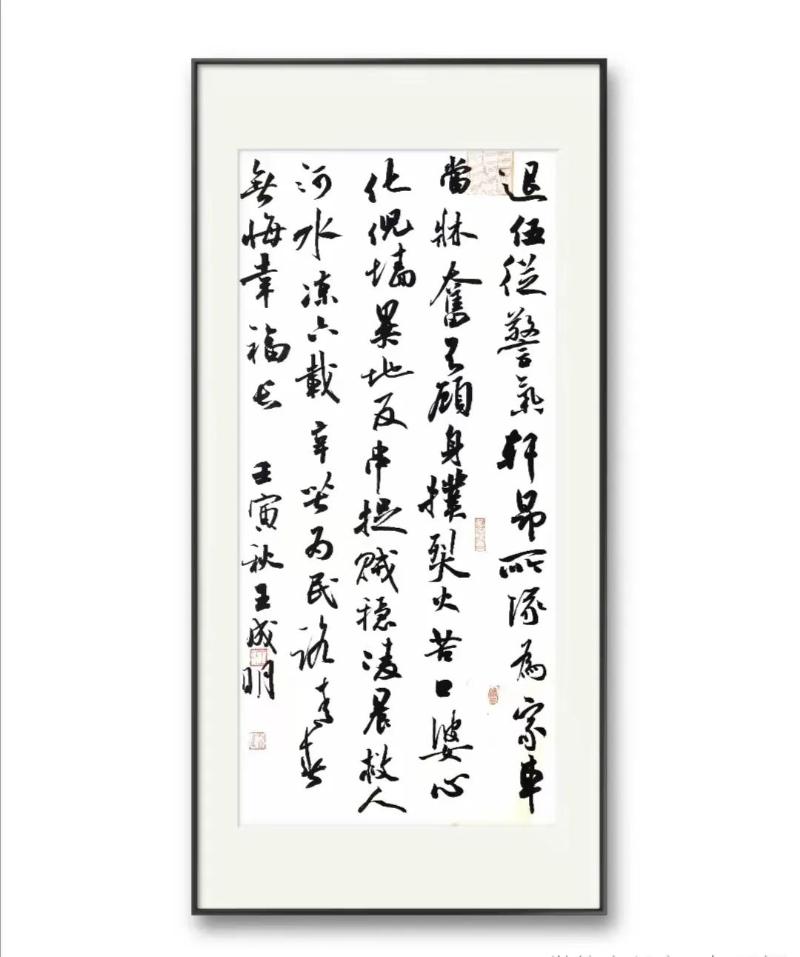 退伍從警氣軒昂所隊為家車
當牀奮不顧身撲烈火苦口婆心
化倪墻異地反串捉賊穩凌晨救人
河水涼六載辛苦为民青春
無悔幸福長 壬寅秋王成明